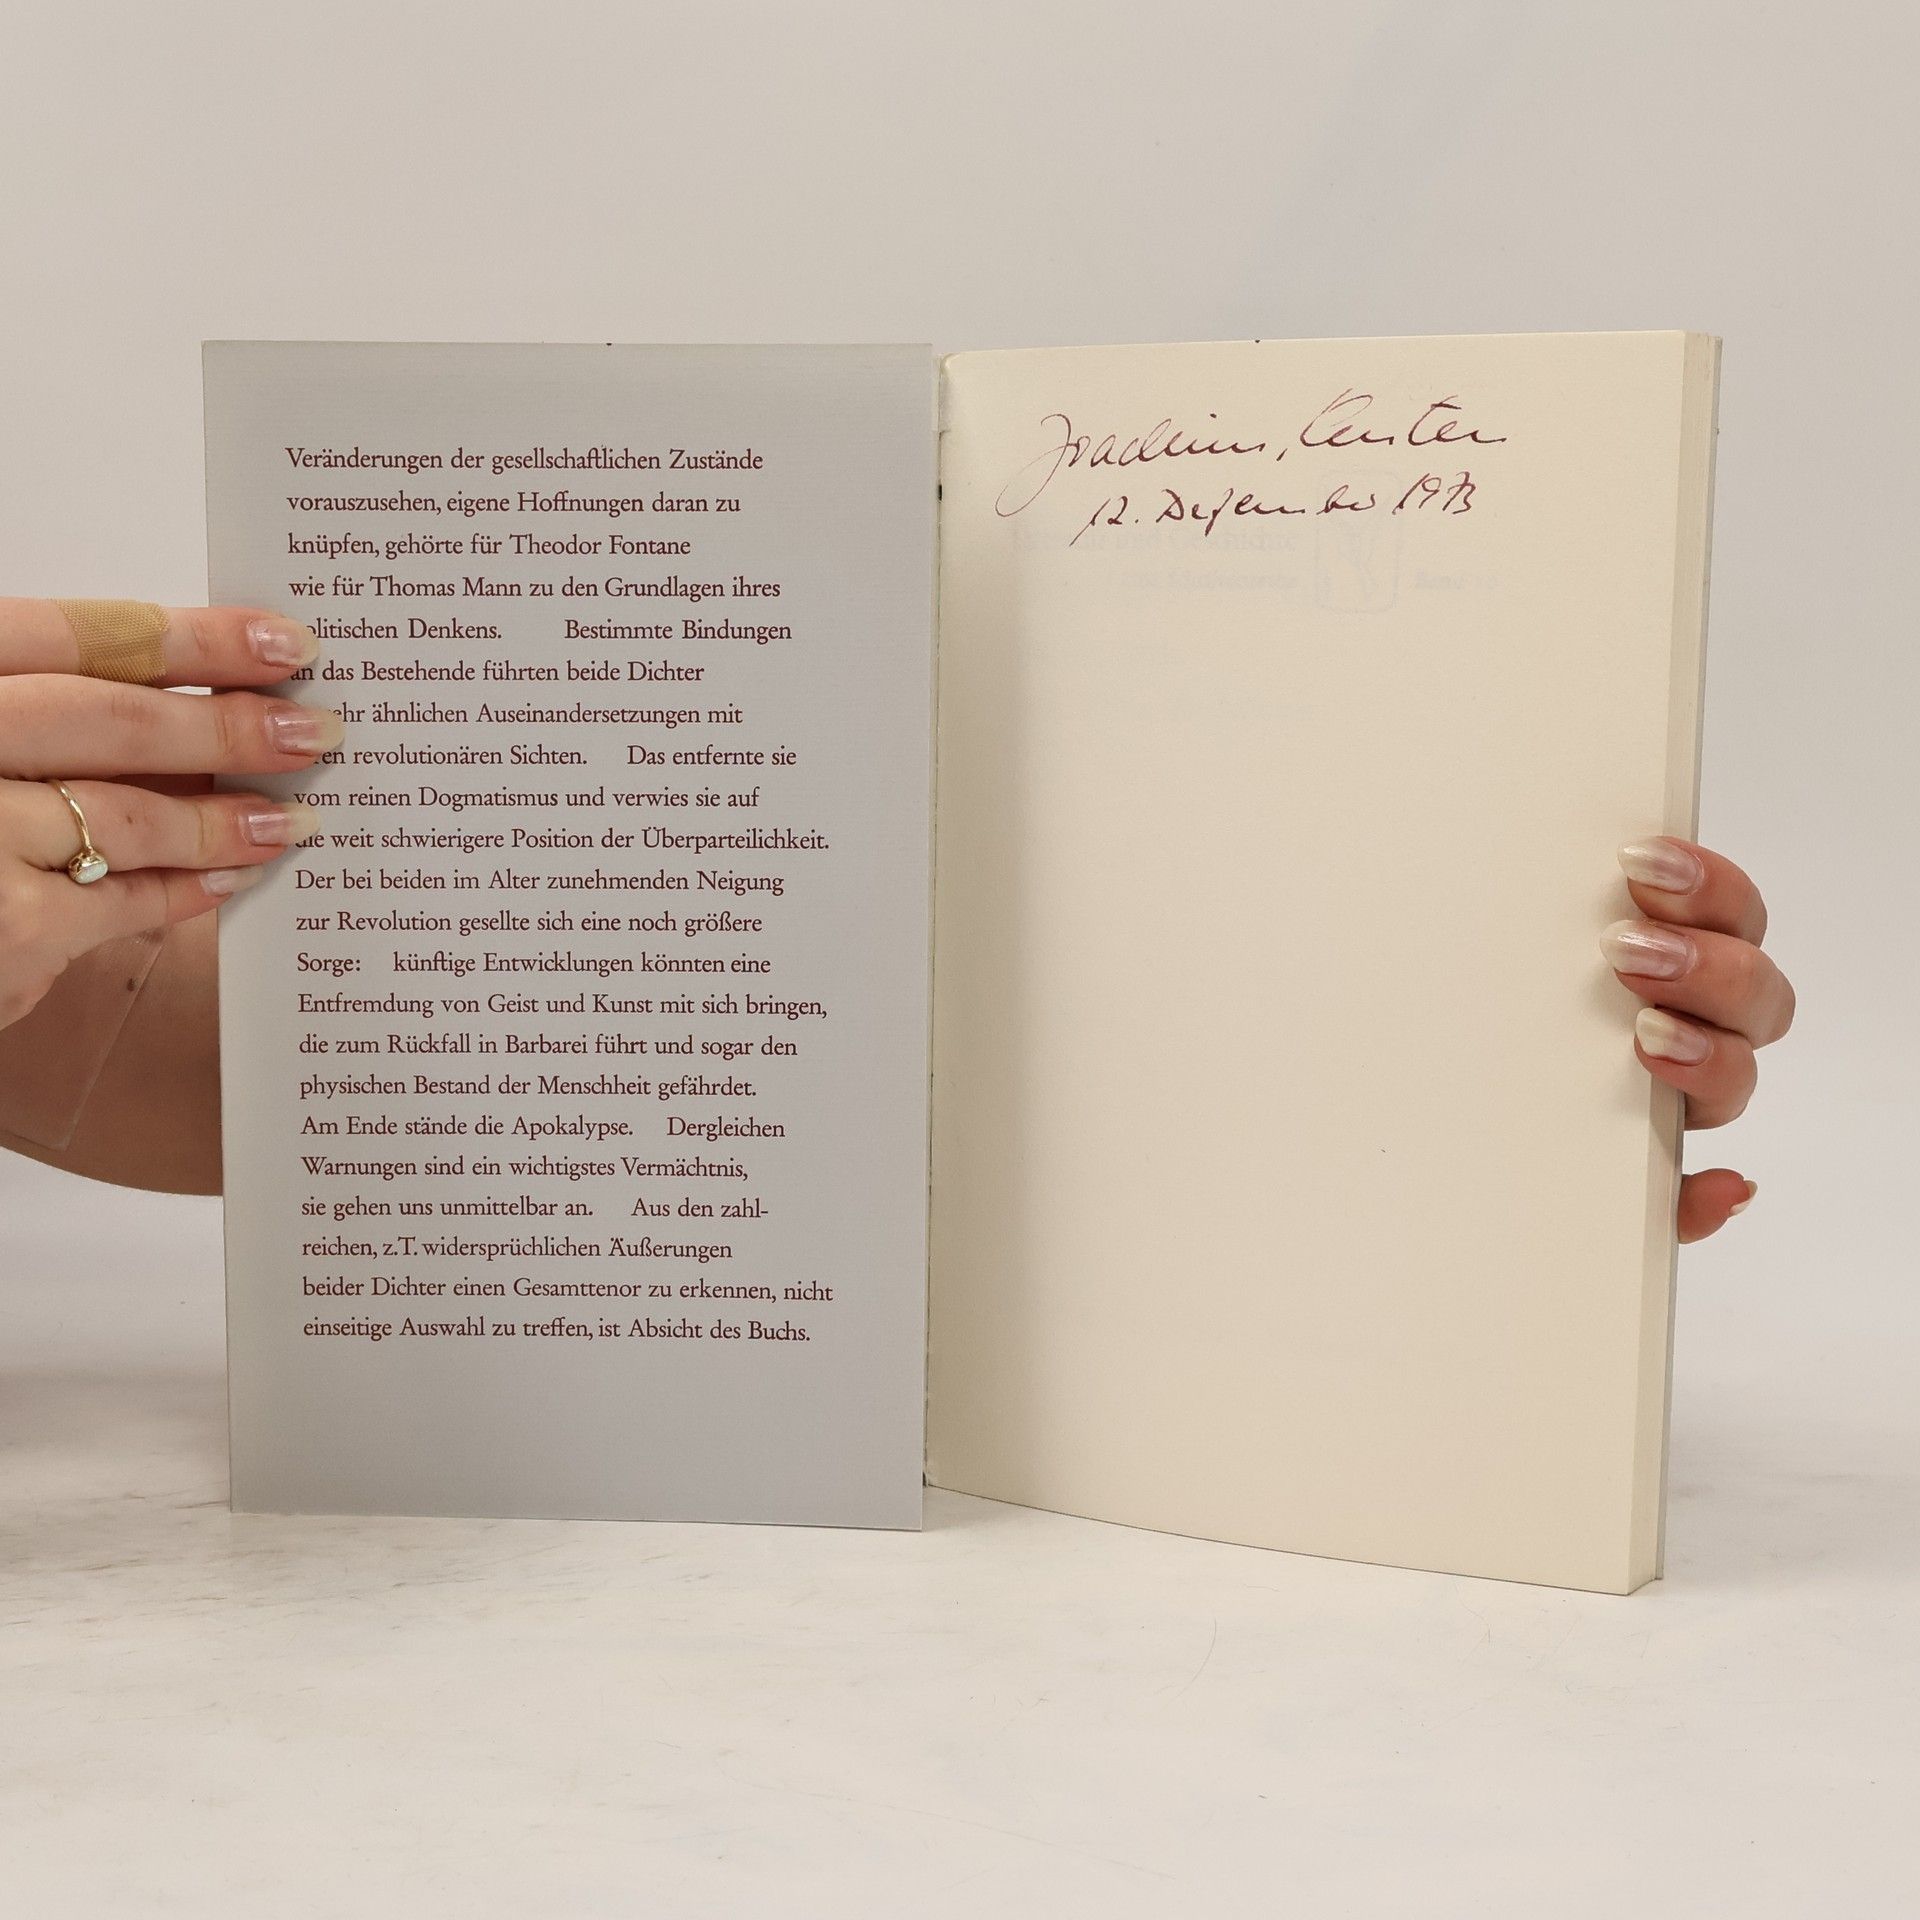 Veränderungen der gesellschaftlichen Zustände
vorauszusehen, eigene Hoffnungen daran zu
knüpfen, gehörte für Theodor Fontane
wie für Thomas Mann zu den Grundlagen ihres
olitischen Denkens. Bestimmte Bindungen
an das Bestehende führten beide Dichter
ehr ähnlichen Auseinandersetzungen mit
en revolutionären Sichten. Das entfernte sie
vom reinen Dogmatismus und verwies sie auf
die weit schwierigere Position der Überparteilichkeit.
Der bei beiden im Alter zunehmenden Neigung
zur Revolution gesellte sich eine noch größere
Sorge: künftige Entwicklungen könnten eine
Entfremdung von Geist und Kunst mit sich bringen,
die zum Rückfall in Barbarei führt und sogar den
physischen Bestand der Menschheit gefährdet.
Am Ende stände die Apokalypse. Dergleichen
Warnungen sind ein wichtigstes Vermächtnis,
sie gehen uns unmittelbar an. Aus den zahl-
reichen, z.T. widersprüchlichen Äußerungen
beider Dichter einen Gesamttenor zu erkennen, nicht
einseitige Auswahl zu treffen, ist Absicht des Buchs.
Joachim
12. Dezember 1973